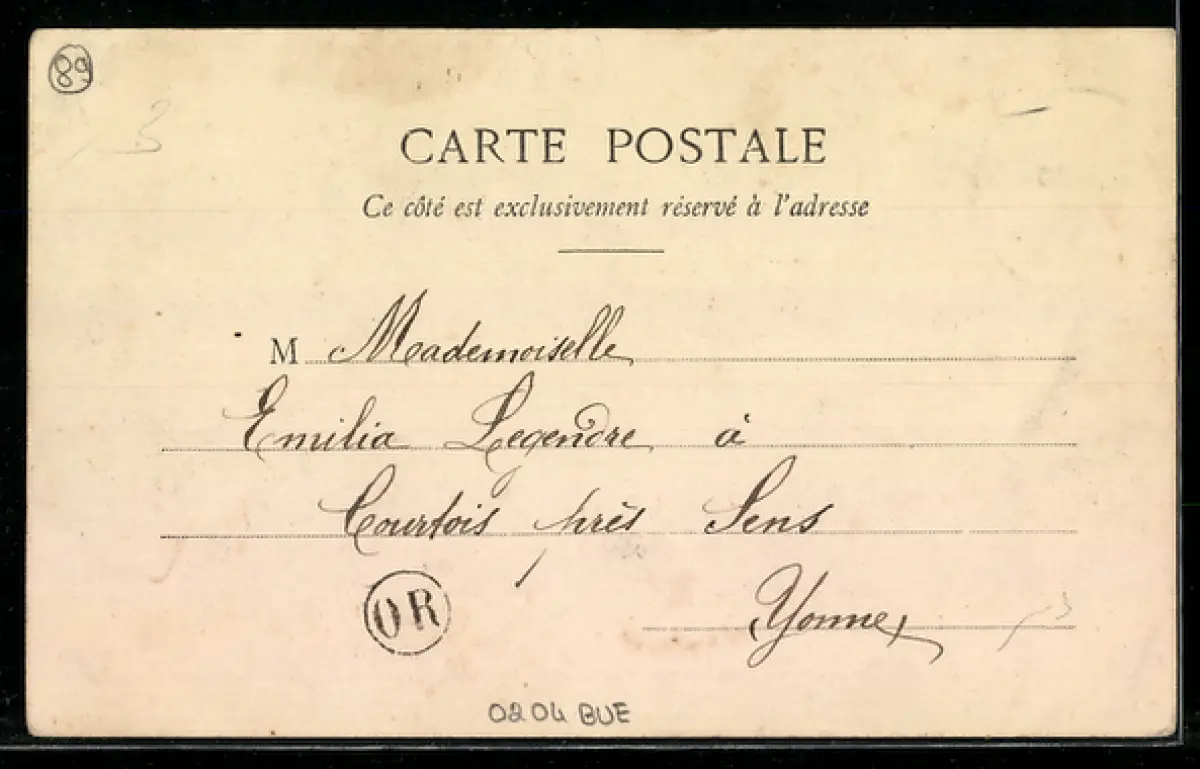 89
3
CARTE POSTALE
Ce côté est exclusivement réservé à l'adresse
M Mademoiselle
Emilia Legendre à
Courtois près Sens
Yonne
OR
0204 BUE